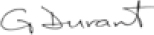 G Durant